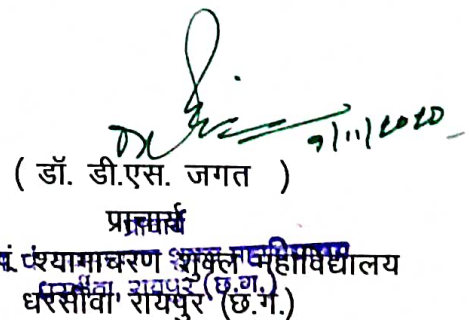 9/11/2020
( डॉ. डी.एस. जगत )
प्राचार्य
पं. श्यामाचरण शुक्ल महाविधालय
धरसींवा रायपुर (छ.ग.)